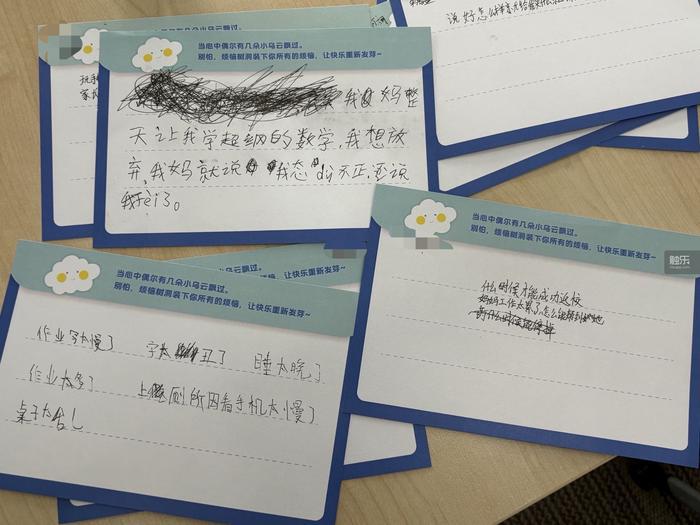 说 好 怎么样
当心中偶尔有几朵小乌云飘过。
别怕，烦恼树洞装下你所有的烦恼，让快乐重新发芽~
玩手
家长
我 妈 整
天让我学超纲的数学，我想放
弃，我妈就说 我态 dù不正，还说
当心中偶尔有几朵小乌云飘过。
别怕，烦恼树洞装下你所有的烦恼，让快乐重新发芽~
触乐
什么时候才能成功返校
妈妈工作太累了，怎么能帮到她
当心中偶尔有几朵小乌云飘过。
别怕，烦恼树洞装下你所有的烦恼，让快乐重新发芽~
作业写太慢了 字太丑了 睡太晚了
作业太多了 上厕所因看手机太慢了
桌子太乱